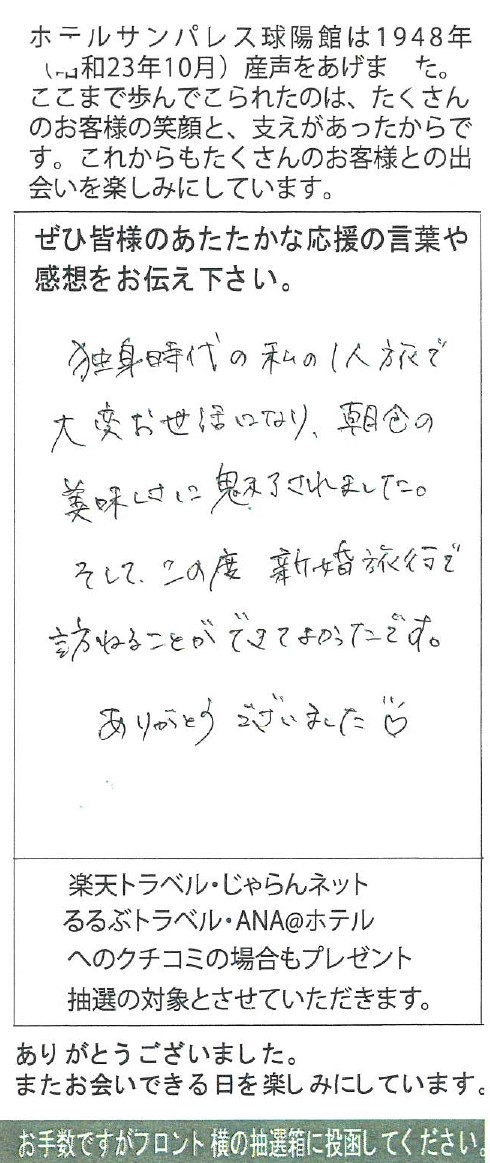 ホテルサンパレス球陽館は1948年
（昭和23年10月）産声をあげま た。
ここまで歩んでこられたのは、たくさん
のお客様の笑顔と、支えがあったからで
す。これからもたくさんのお客様との出
会いを楽しみにしています。
ぜひ皆様のあたたかな応援の言葉や
感想をお伝え下さい。
独身時代の私の1人旅で
大変お世話になり、朝食の
美味しさに魅了されました。
そして、この度 新婚旅行で
訪ねることができてよかったです。
ありがとうございました♡
楽天トラベル・じゃらんネット
るるぶトラベル・ANA@ホテル
へのクチコミの場合もプレゼント
抽選の対象とさせていただきます。
ありがとうございました。
またお会いできる日を楽しみにしています。
お手数ですがフロント横の抽選箱に投函してください。